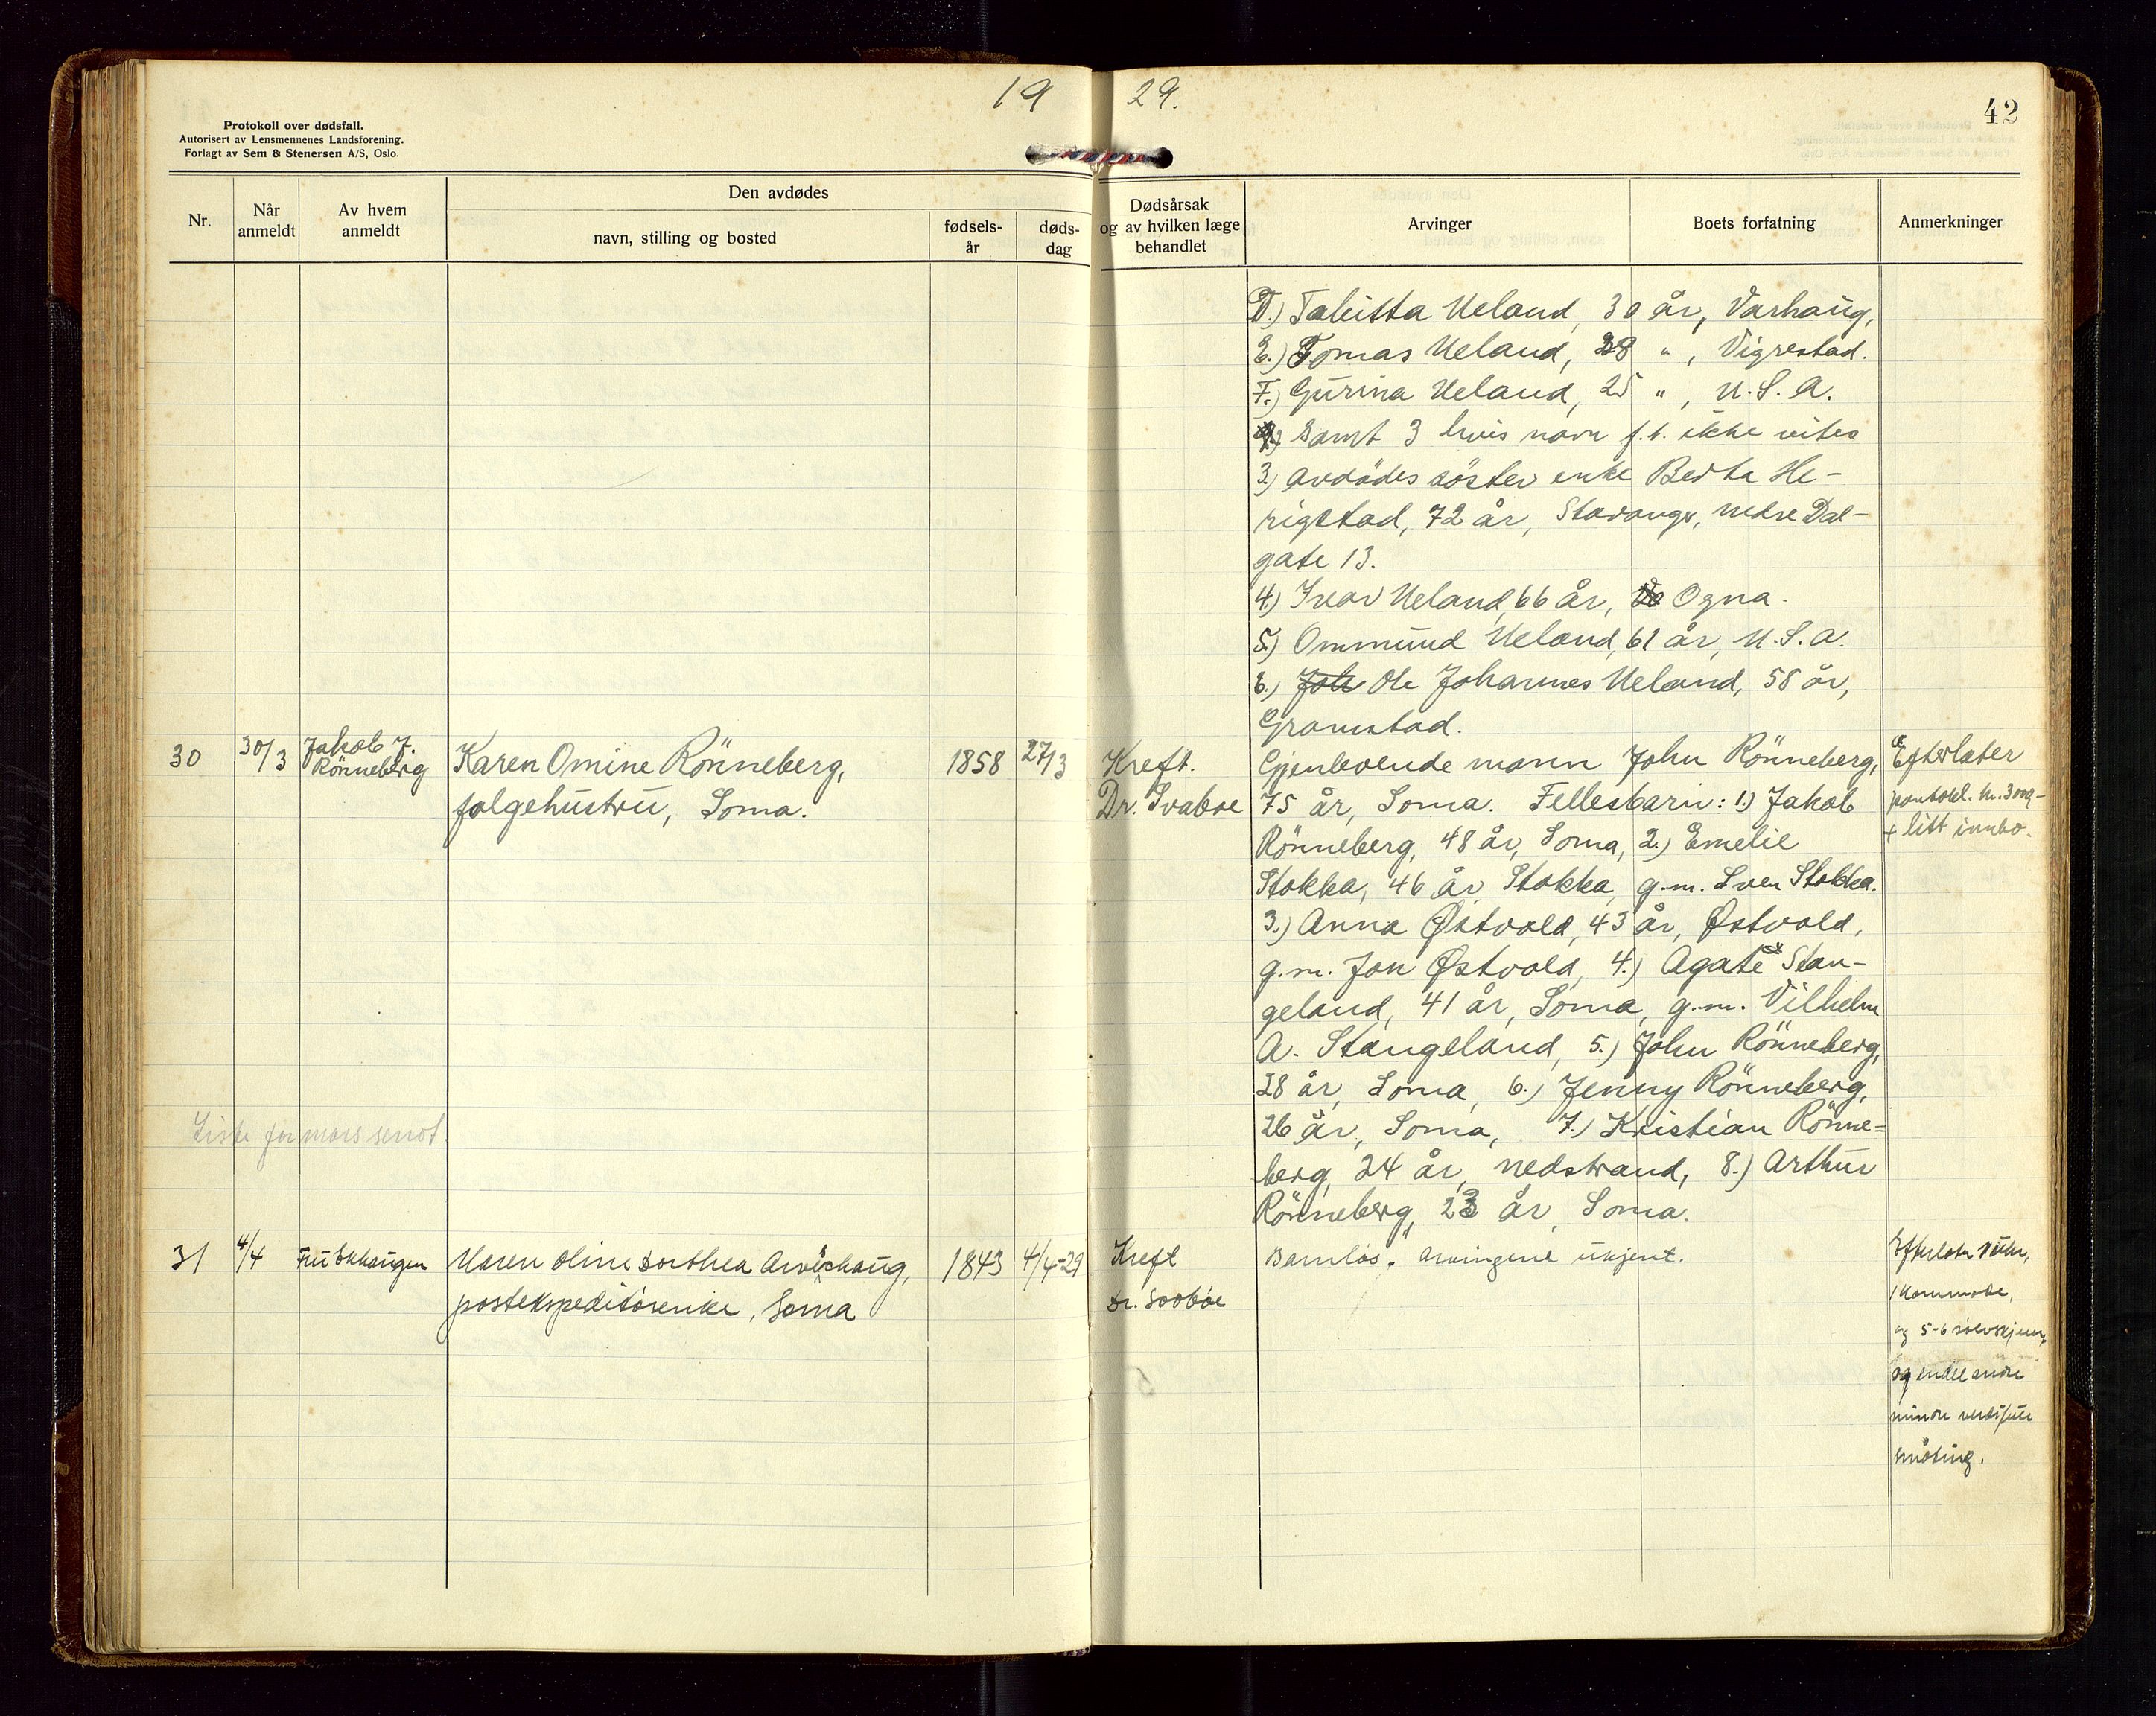 19 29.
42
Protokoll over dødsfall.
Autorisert av Lensmennenes Landsforening.
Forlagt av Sem & Stenersen A/S, Oslo.
Nr.
Når anmeldt
Av hvem anmeldt
Den avdødes
navn, stilling og bosted
fødsels-år
døds-dag
Dødsårsak og av hvilken læge behandlet
Arvinger
Boets forfatning
Anmerkninger
D.) Tabitta Ueland, 30 år, Varhaug,
E.) Tomas Ueland, 28 " , Vigrestad.
F.) Gurina Ueland, 25 " , U.S.A.
Samt 3 hvis navn f.t. ikke vites
3.) avdødes söster enke Berta He-
rigstad, 72 år, Stavanger, nedre Dal-
gate 13.
4.) Ivar Ueland, 66 år, Ogna.
5.) Ommund Ueland, 61 år, U.S.A.
6.) Joh Ole Johannes Ueland, 58 år,
Gramstad.
30
30/3
Jakob J.
Rönneberg
Karen Omine Rönneberg,
folgehustru, Soma.
1858
27/3
Kreft.
Dr. Svaboe
Gjenlevende mann John Rönneberg,
75 år, Soma. Fellesbarn: 1.) Jakob
Rönneberg, 48 år, Soma, 2.) Emelie
Stokka, 46 år, Stokka, g.m. Sven Stokka.
3.) Anna Østvold, 43 år, Østvold,
g.m. Jon Østvold, 4.) Agate Stan-
geland, 41 år, Soma, g.m. Vilhelm
A. Stangeland, 5.) John Rönneberg,
28 år, Soma, 6.) Jenny Rönneberg,
26 år, Soma, 7.) Kristian Rönne=
berg, 24 år, nedstrand, 8.) Arthur
Rönneberg, 23 år, Soma.
Efterlater
+ litt innbo.
Liste for mars sendt.
31
4/4
Fru
Maren Oline Dorthea
postekspeditörenke, Soma
1843
4/4-29
Kreft
Dr. Svaböe
Barnlös. Arvingene ukjent.
1 kommode,
og 5-6 sölvskjeer,
og endel andre
mindre verdifulle
småting.